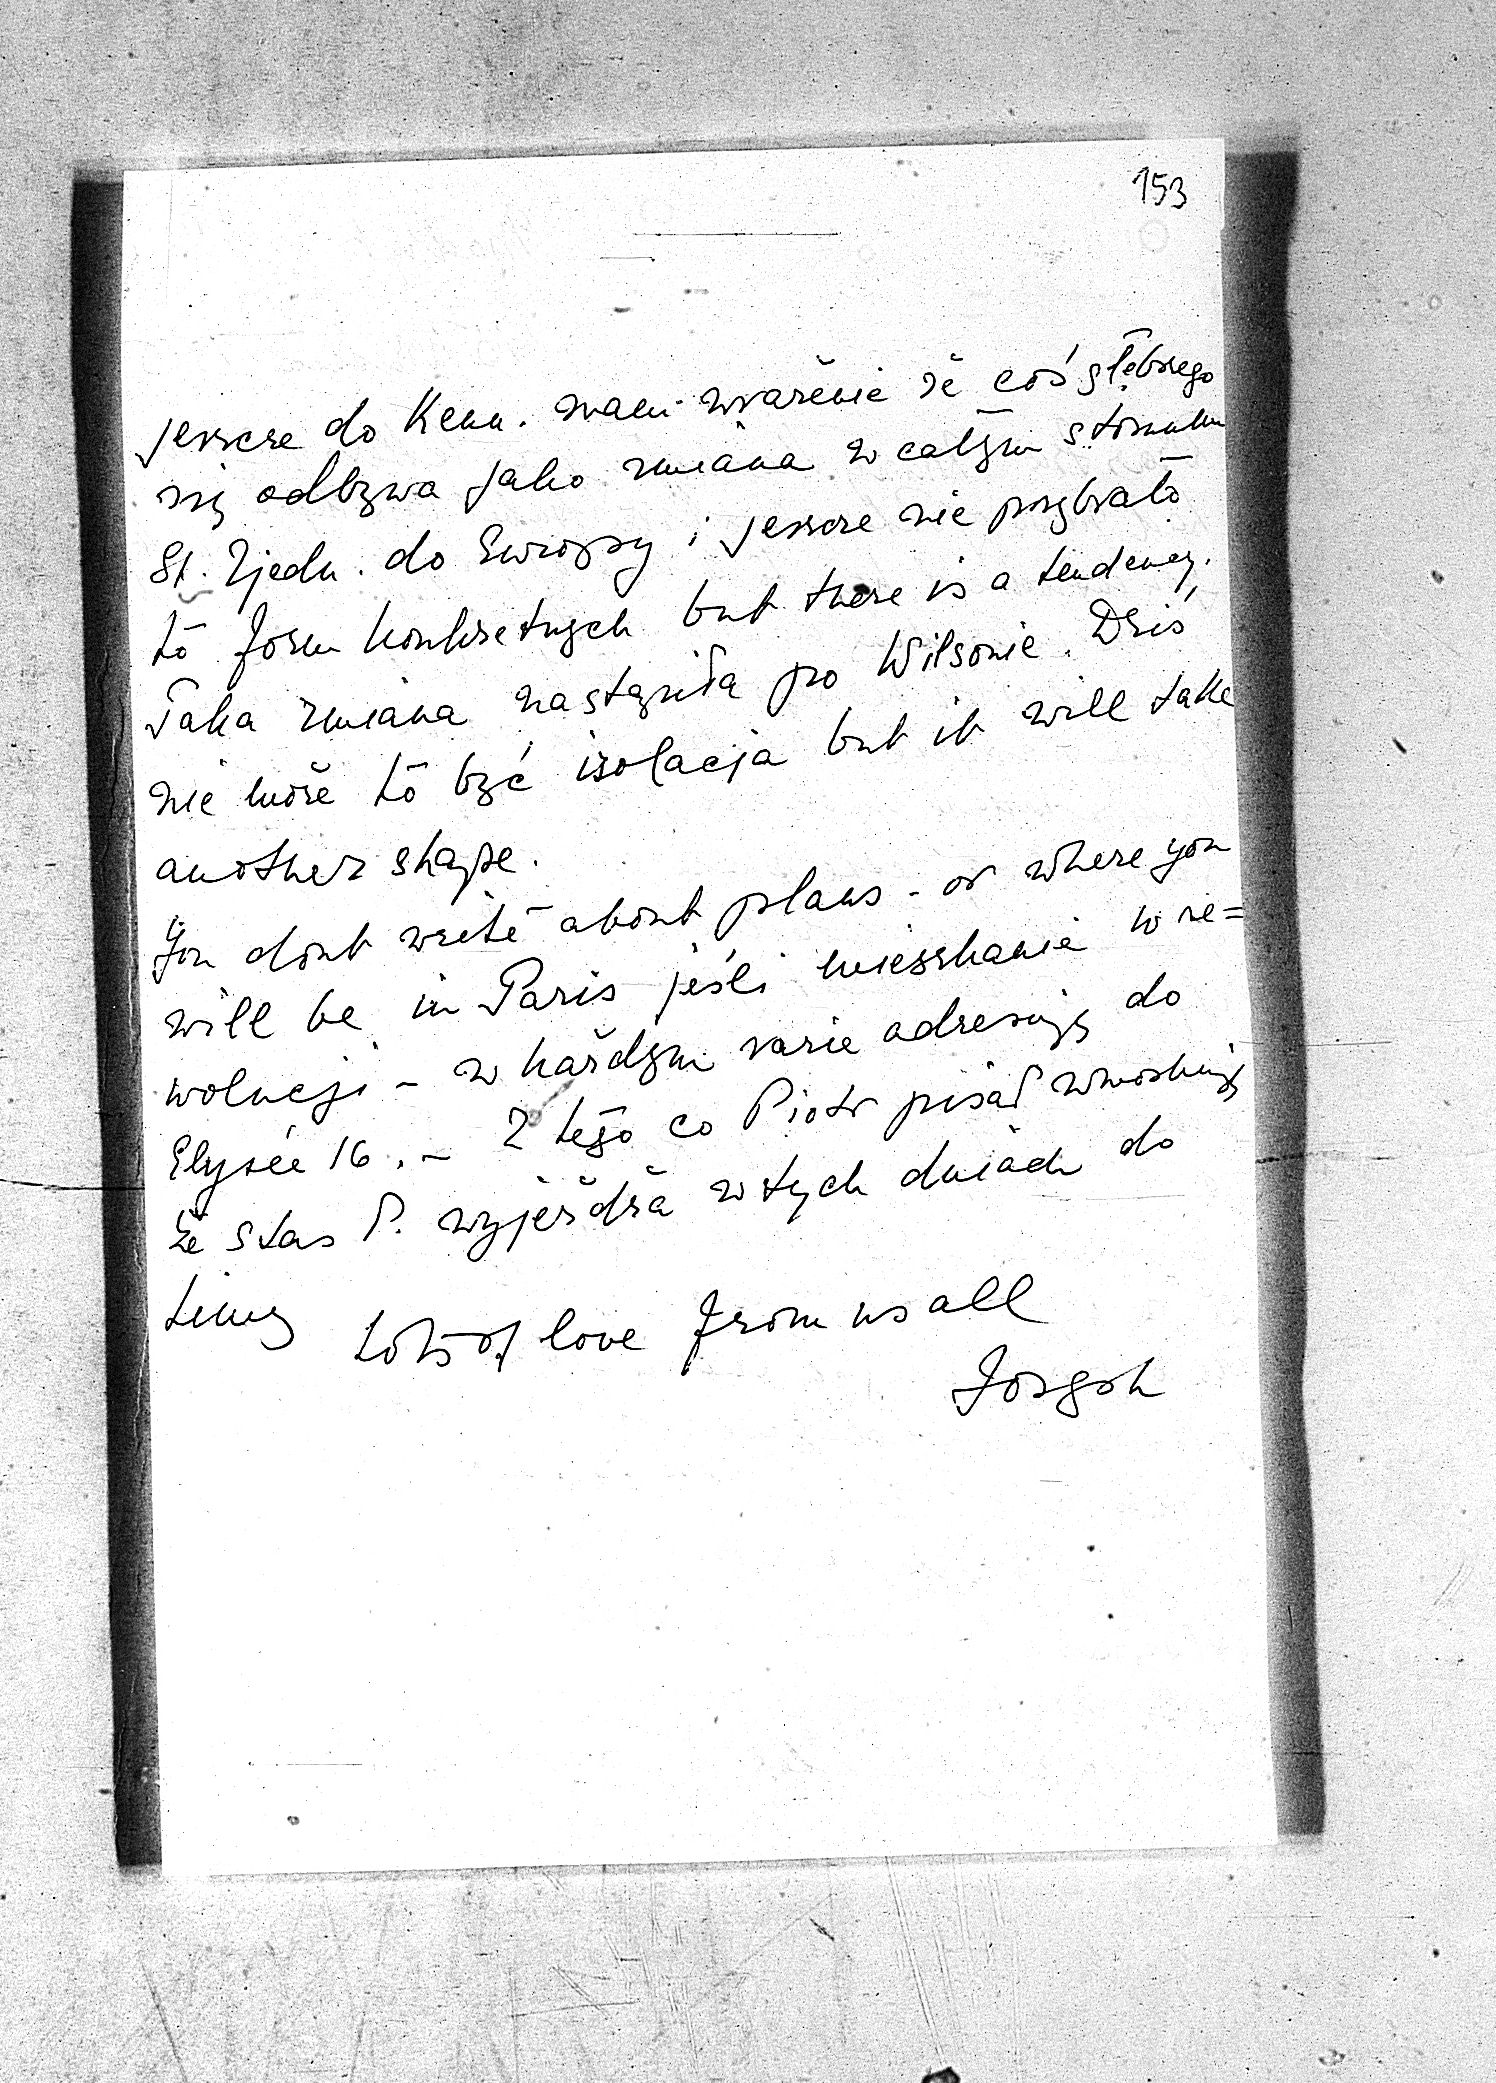 153
jeszcze do Kenn. mam wrażenie że coś głębszego
się odbywa jako zmiana w całym stosunku
St. Zjedn. do Europy i jeszcze nie przybrało
to form konkretnych but there is a tendency.
Taka zmiana nastąpiła po Wilsonie. Dziś
nie może to być izolacja but it will take
another shape.
You dont write about plans - or where you
will be in Paris jeśli mieszkanie w re=
wolucji - w każdym razie adresuję do
Elysée 16. - Z tego co Piotr pisał wnioskuję
że Stas P. wyjeżdża w tych dniach do
Limy
Lots of love from us all